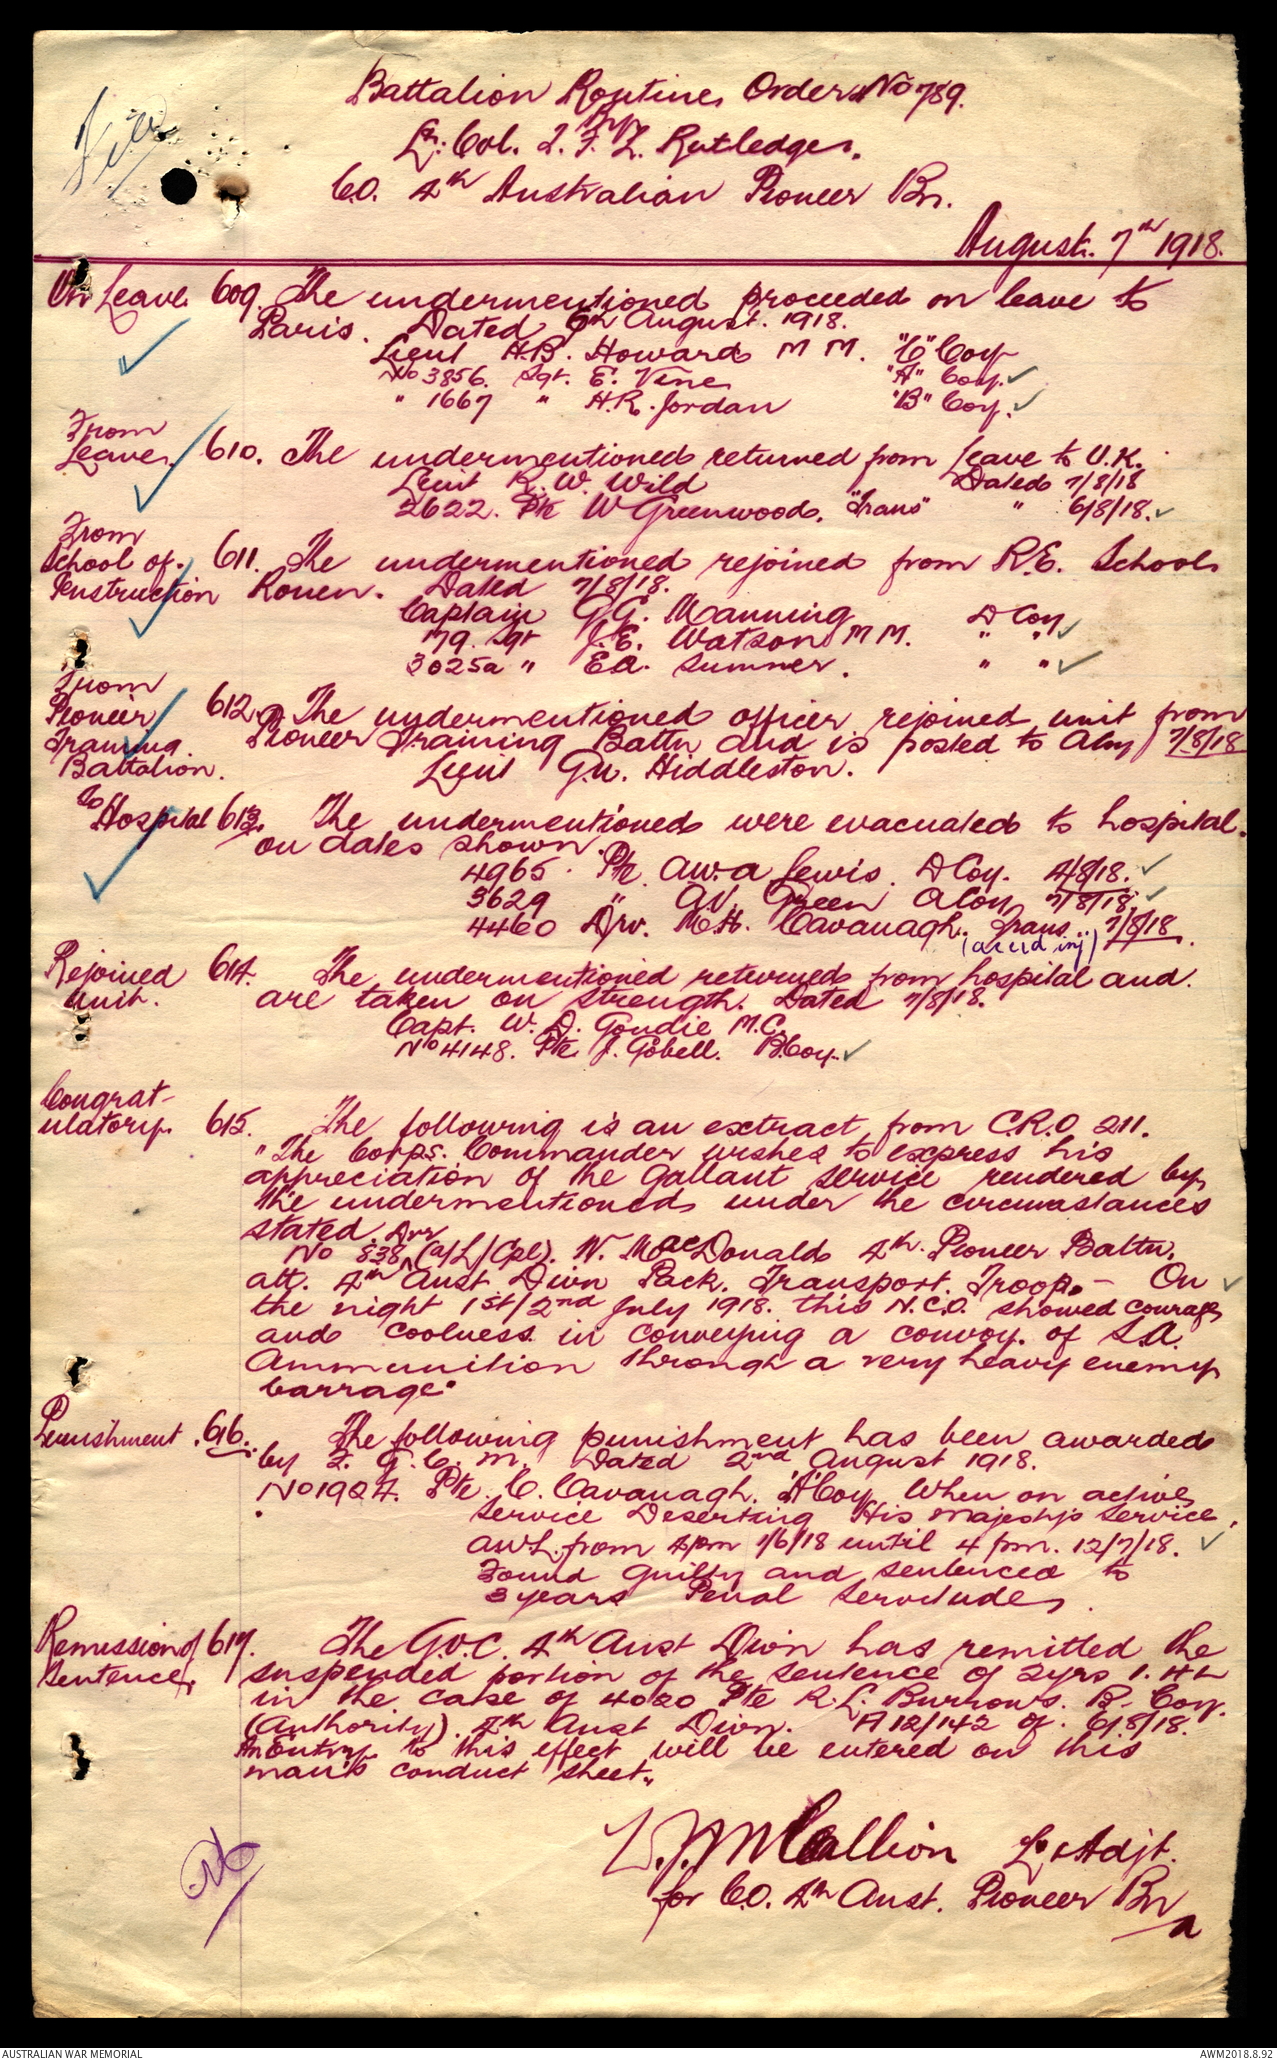 File
Battalion Routine Orders No 789.
By
Lt: Col. T. F. L. Rutledge.
C.O. 4th Australian Pioneer Bn.
August. 7th 1918.
On Leave 609. The undermentioned proceeded on leave to
Paris. Dated 6th August. 1918.
Lieut H.B. Howard M M. "C" Coy
No 3856. Sgt. E. Vine "A" Coy.
" 1667 " H.R. Jordan "B" Coy.
From
Leave. 610. The undermentioned returned from Leave to U.K.
Lieut R. W. Wild Dated 7/8/18
2622. Pte W Greenwood. "Trans" " 6/8/18.
From
School of. 611. The undermentioned rejoined from R.E. School
Instruction Rouen. Dated 7/8/18.
Captain G.G. Manning D Coy
179. Sgt J.E. Watson M M. " "
3025a " E.A. Sumner. " "
From
Pioneer 612. The undermentioned officer rejoined unit from
Training. Pioneer Training Battn and is posted to A Coy 7/8/18
Battalion. Lieut G.N. Hiddleston.
To
Hospital 613. The undermentioned were evacuated to hospital.
on dates shown.
4965. Pte A.W.A Lewis. D Coy. 4/8/18.
3629 " A.V. Green A Coy 7/8/18.
4460 Drv. M.H. Cavanagh. Trans.. 7/8/18.
(accid inj)
Rejoined 614. The undermentioned returned from hospital and.
Unit. are taken on strength. Dated 7/8/18.
Capt. W. D. Goudie M.C.
No 4148. Pte J. Gobell. B. Coy.
Congrat-
ulatory. 615. The following is an extract from C.R.O 211.
"The Corps. Commander wishes to express his
appreciation of the Gallant service rendered by
the undermentioned under the circumstances
stated. Dvr
No 838. (a/L/Cpl). W. MacDonald 4th Pioneer Battn.
att. 4th Aust Divn Pack. Transport. Troop. - On
the night 1st/2nd July 1918. this N.C.O. showed courage
and coolness in conveying a convoy. of S.A.
Ammunition through a very heavy enemy
barrage."
Punishment. 616. The following punishment has been awarded
by F. G. C. M. Dated 2nd August 1918.
No 1927. Pte. C. Cavanagh. "A" Coy When on active
Service Deserting His Majesty's Service.
AWL. from 4pm 1/6/18 until 4 pm. 12/7/18.
Found Guilty and sentenced to
3 years Penal Servitude.
Remission of 617. The G.O.C. 4th Aust Divn has remitted the
Sentence. suspended portion of the sentence of 2yrs I. H L
in the case of 4020 Pte R. L. Burrows. B. Coy.
(Authority). 4th Aust Divn. A 12/142 of. 6/8/18.
An Entry to this effect will be entered on this
man's conduct sheet.
L. J. McCallion Lt & Adjt.
for C.O. 4th Aust. Pioneer Bn
AUSTRALIAN WAR MEMORIAL AWM2018.8.92